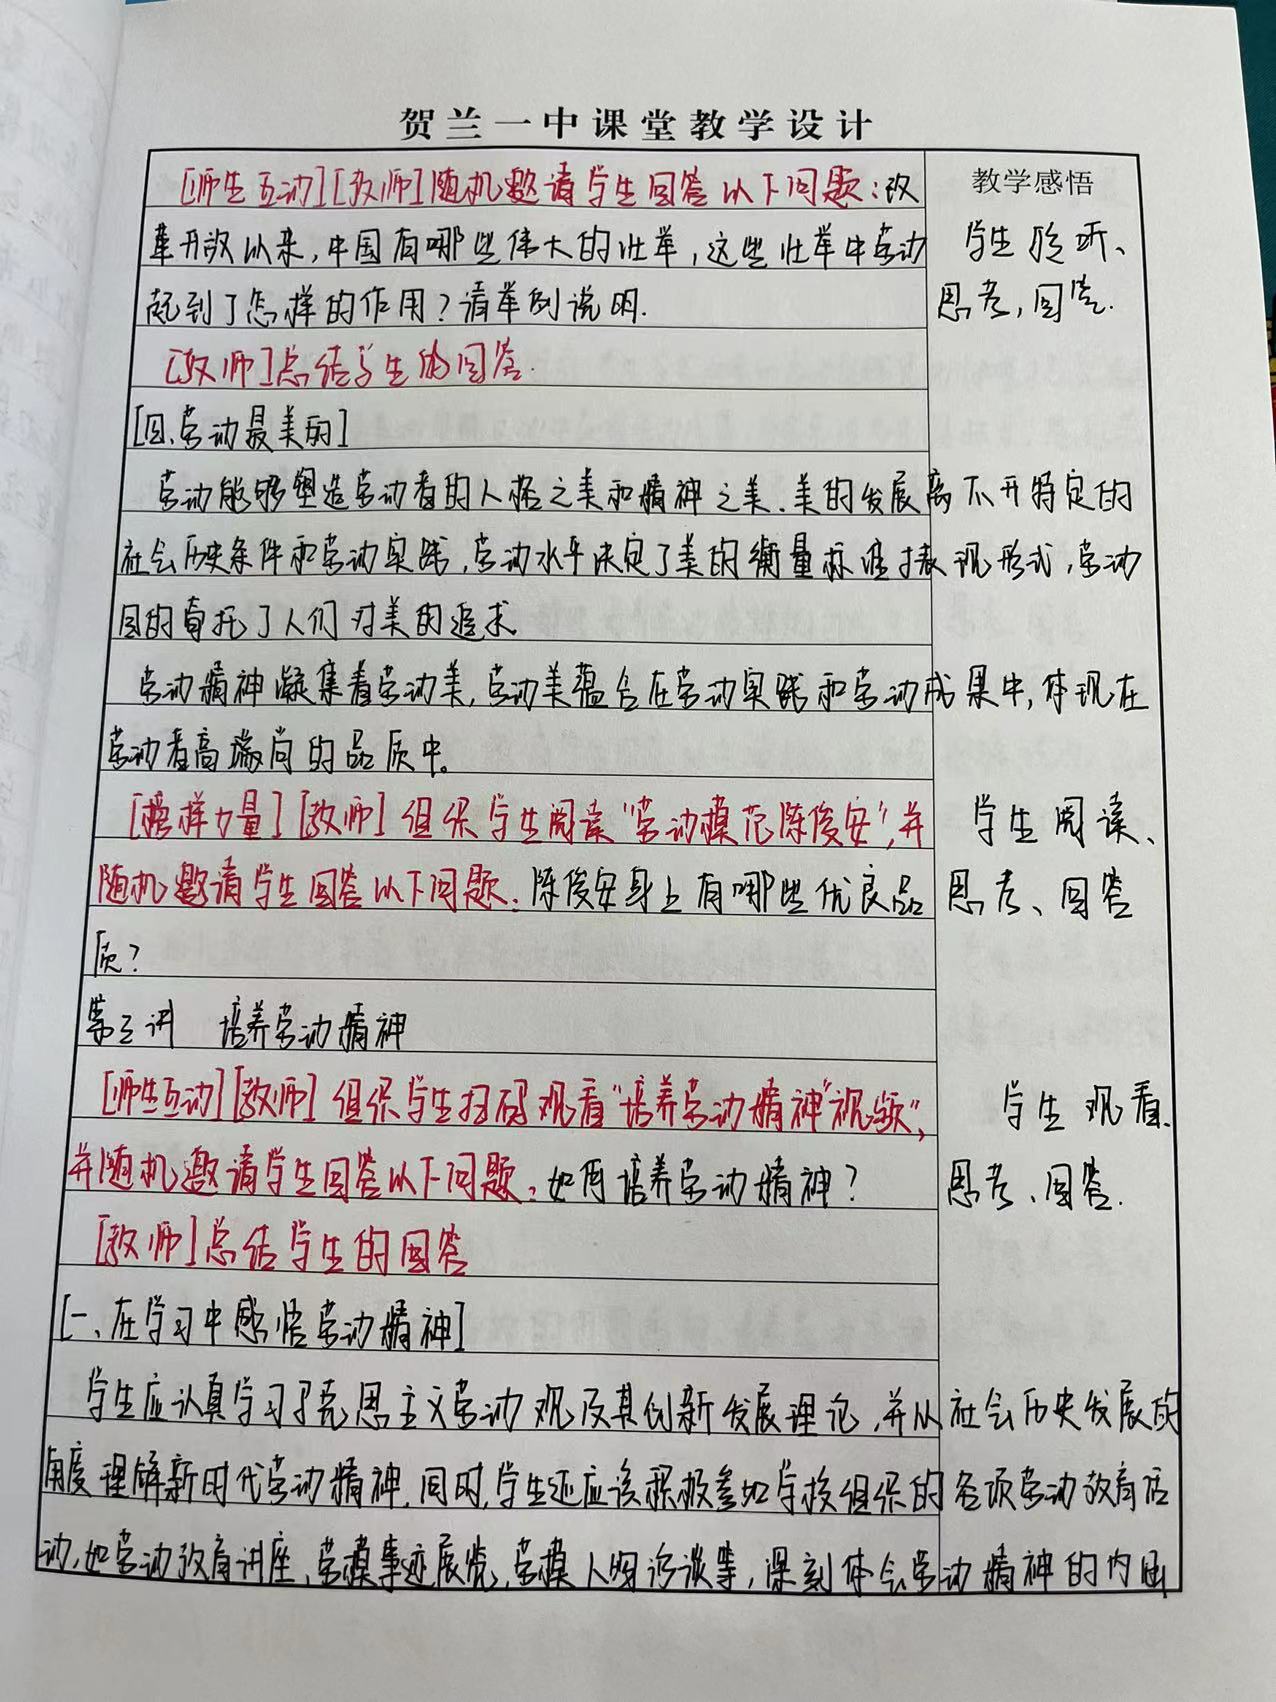 贺兰一中课堂教学设计
[师生互动][教师]随机邀请学生回答以下问题:改
教学感悟
革开放以来,中国有哪些伟大的壮举,这些壮举中劳动
学生聆听、
起到了怎样的作用?请举例说明.
思考,回答.
[教师]总结学生的回答.
[四、劳动最美的]
劳动能够塑造劳动者的人格之美和精神之美.美的发展离不开特定的
社会历史条件和劳动实践,劳动水平决定了美的衡量标准才表现形式,劳动
目的寄托了人们对美的追求.
劳动精神凝集着劳动美,劳动美蕴含在劳动实践和劳动成果中,体现在
劳动者高端尚的品质中。
[榜样力量][教师]组织学生阅读“劳动模范陈俊安”,并
学生阅读、
随机邀请学生回答以下问题:陈俊安身上有哪些优良品
思考、回答
质?
第三讲 培养劳动精神
[师生互动][教师]组织学生扫码观看“培养劳动精神”视频”,
学生观看、
并随机邀请学生回答以下问题:如何培养劳动精神?
思考、回答.
[教师]总结学生的回答
[一、在学习中感悟劳动精神]
学生应认真学习马克思主义劳动观及其创新发展理论,并从社会历史发展的
角度理解新时代劳动精神.同时,学生还应该积极参加学校组织的各项劳动教育活
动,如劳动教育讲座、劳模事迹展览、劳模人物访谈等,深刻体会劳动精神的内涵